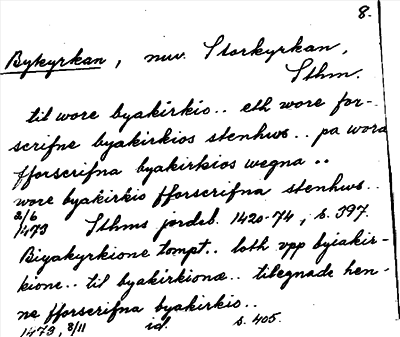 8.
Bykyrkan, nuv. Storkyrkan,
Sthm.
til wore byakirkio.. eth wore for-
scrifne byakirkios stenhws.. pa wora
fforscrifna byakirkios wegna..
wore byakirkio fforscrifna stenhws..
2/6
1473 Sthms jordeb. 1420-74, s. 397.
Biyakyrkione tompt.. loth vpp byiakir-
kione.. til byakirkionæ.. tilegnade hen-
ne fforscrifna byakirkio..
1473, 8/11 id. s. 405.